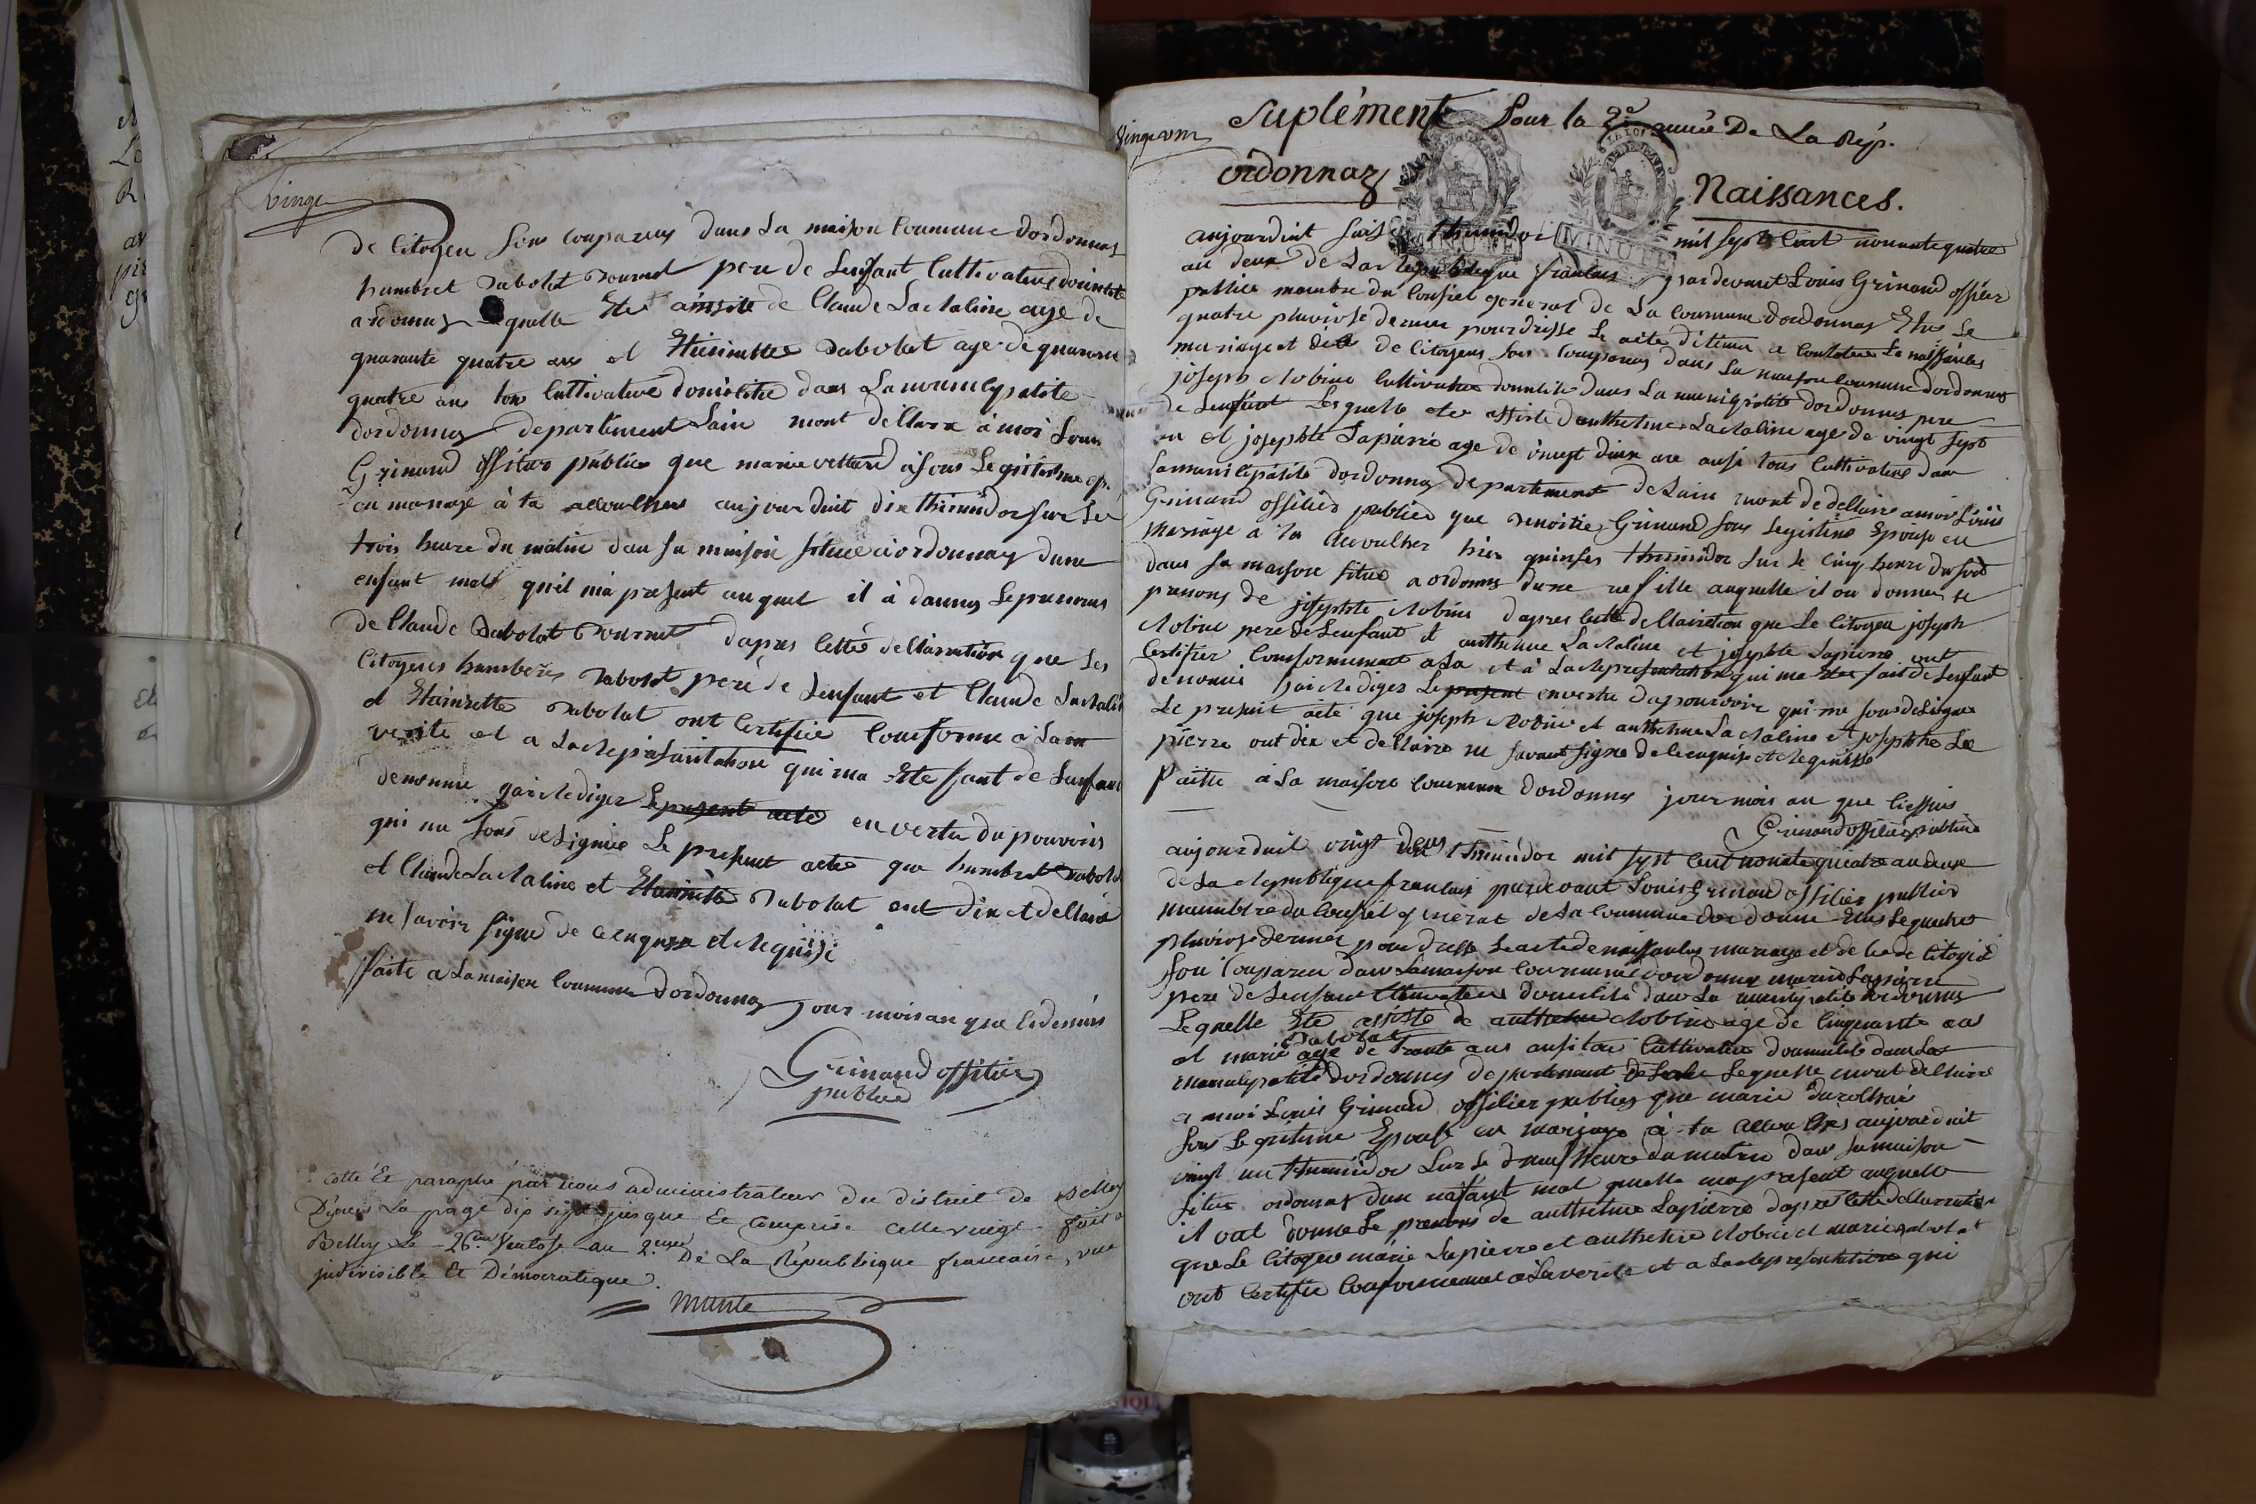 Vingt
de Citoyen sons Comparus dans La maison Commune dordonnas
humbert Rabolat pere de Lenfant Cultivateur
a ordonnas Lequelle Ete assiste de Claude La Maline age de
quarante quatre ans et Etiennette Rabolat age de quarante
quatre ans tous Cultivateur domicilie dans La municipalite
dordonnas departement Lain mont dellare à moi Louis
Grinand offitier publics que marie à sons Legitime ep.
en mariage à ta accoulher aujourduit dix thermidor sur Les
trois heure du matin dan sa maison situe a ordonnas dune
enfant male qu'il ma present auquel il à donnes Le prenoms
de Claude Rabolat dapres cette dellaration que Les
Citoyens humbert Rabolat pere de Lenfant et Claude La Maline
et Etiennette Rabolat ont Certifiée Conforme à La
verite et a La Represantation qui ma Ete fait de Lenfant
denomme jai Rediger Le present acte en vertu du pouvoirs
qui me sons designée Le present acte que humbert Rabolat
et Claude La Maline et Etiennette Rabolat ont dix et dellaré
ne savoir signe de ce enquis et Requisi
faite a La maison Commune dordonnas jour mois an que Cidessus
Grinand offitier
publics
Cotté Et paraphé par nous administrateur du district de Belley
Depuis La page dix sept jusque Et Comprise celle vingt. fait à
Belley Le 26.me Ventose an 2.eme De La République francaise, une
indivisible Et Démocratique.
Vingt un
Suplément Pour la 2.e année De La Rép.
ordonnaz
Naissances.
MINUTE
MINUTE
aujourdhuit saise thermidor mil sept Cent nonante quatre
an deux de La Republique francais pardevant Louis Grinand offitier
publics membre du Conseil general de La Commune dordonnas Elus Le
quatre pluviose dernier pour dresse Le acte detenir a Constater La naissances
mariage et décé de Citoyens sons Comparus dans La maison Commune dordonnas
joseph Robine Cultivateur domicilie dans La municipalité dordonnas pere
de Lenfant Lesquelle ete assiste danthelme La Maline age de vingt sept
an et josephte Lapierre age de vingt deux ans ausi tous Cultivateur dans
La municipalite dordonnas departement de Lain mont de dellaire a moi Louis
Grinand offitier publics que Benoitte Grinand sons Legitime Epouse en
mariage à ta Accoulher hier quinse thermidor sur le Cinq heure du soir
dans sa maison situe a ordonnas dune fille auquelle il on donner le
prenoms de josephte Robine dapres Cette dellairation que Le Citoyen joseph
Robine pere de Lenfant et anthelme La Maline et josephte Lapierre ont
Certifier Conformement a La et à La Representation qui ma Ete fait de Lenfant
denomme jai Rediger Le present en vertu da pouvoir qui me sons designée
Le present acte que joseph Robine et anthelme La Maline et josephte La
pierre ont dix et dellaire ne savoir signe de ce enquis et Requisse
faitte à La maison Commune dordonnas jour mois an que Ciessus
Grinand offitier publics
aujourduit vingt deux thermidor mil sept Cent nonate quatre an deux
de La Republique francais pardevant Louis Grinand offitier publics
membre du Conseil general de La Commune dordonne Elus Le quatre
pluviose dernier pour dresse Le acte de naissantes mariage et de Ce de Citoyens
son Comparu dans La maison Commune dordonnas marin Lapierre
pere de Lenfant Cultivateur domicilié dans La municipalite dordonnas
Lequelle Ete assiste de anthelme Robine age de Cinquante ans
Rabolat
et marie age de trante ans ausi tous Cultivateur domicile dans La
municipalité dordonnas departemant de Lain Lequelle mont dellaire
a moi Louis Grinand offitier publics que marie
sons Legitime Epouse en mariage à ta accoulher aujourduit
vingt un thermidor sur Le deux heure du matin dans sa maison
situe ordonnas dun enfant mal quelle ma present auquelle
il ont donne Le prenoms de anthelme Lapierre dapres Cette dellaration
que Le Citoyen marin Lapierre et anthelme Robine et marie Rabolat
ont Certifie Conformemant a La verite et a La Representation qui